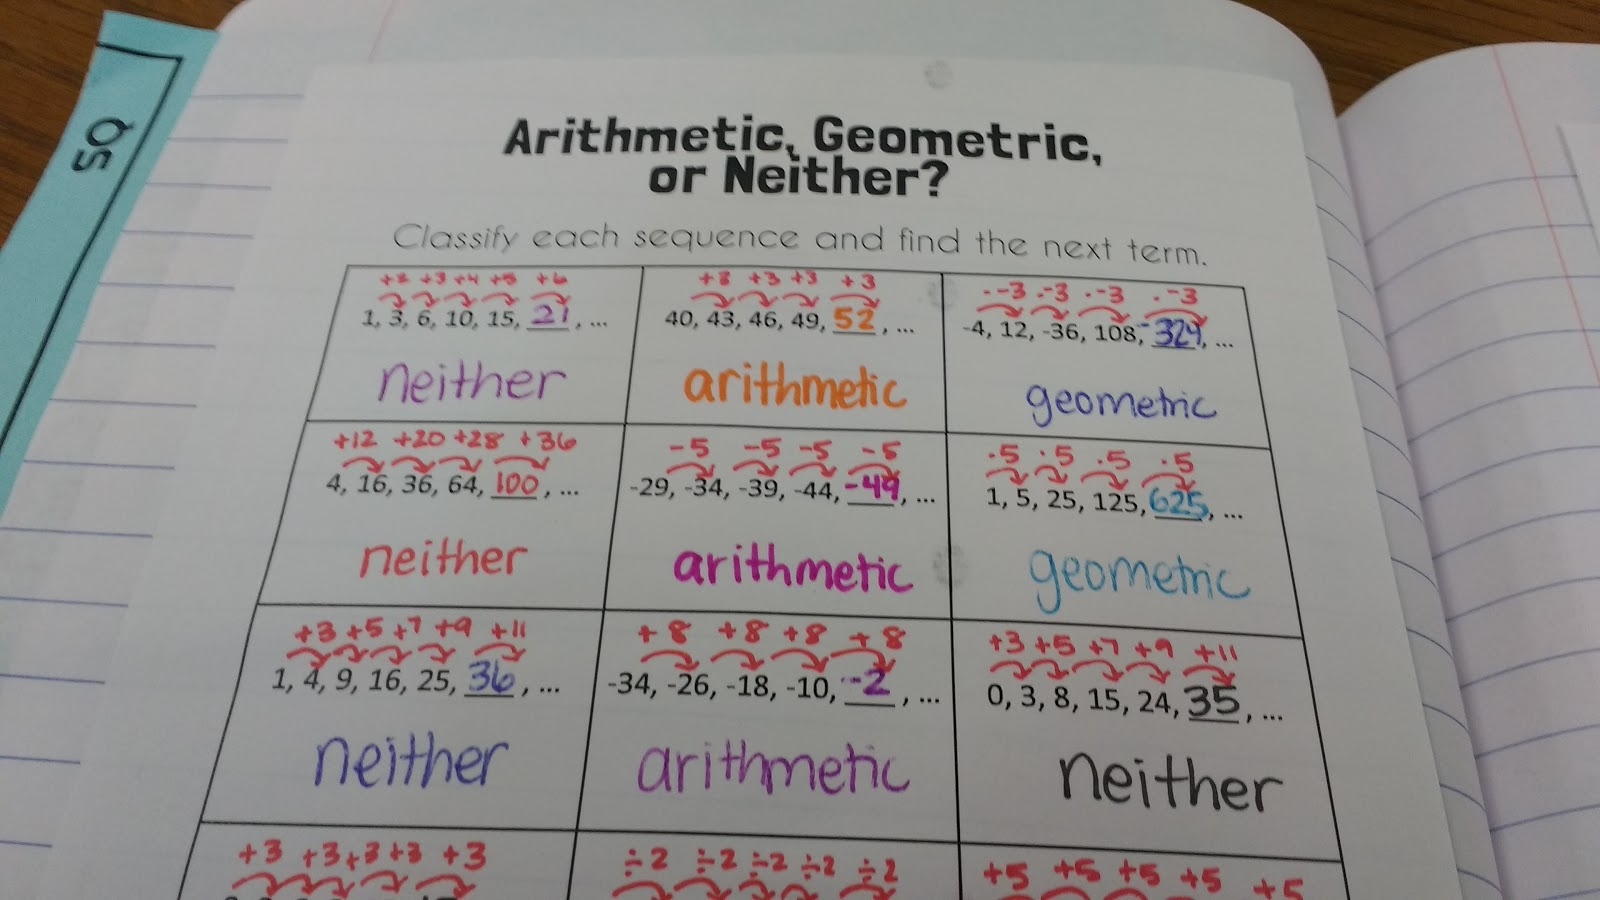 QS
Arithmetic, Geometric,
or Neither?
Classify each sequence and find the next term.
+2 +3 +4 +5 +6
1, 3, 6, 10, 15, 21, ...
neither
+3 +3 +3 +3
40, 43, 46, 49, 52, ...
arithmetic
·-3 ·-3 ·-3 ·-3
-4, 12, -36, 108, -324, ...
geometric
+12 +20 +28 +36
4, 16, 36, 64, 100, ...
neither
-5 -5 -5 -5
-29, -34, -39, -44, -49, ...
arithmetic
·5 ·5 ·5 ·5
1, 5, 25, 125, 625, ...
geometric
+3 +5 +7 +9 +11
1, 4, 9, 16, 25, 36, ...
neither
+8 +8 +8 +8
-34, -26, -18, -10, -2, ...
arithmetic
+3 +5 +7 +9 +11
0, 3, 8, 15, 24, 35, ...
neither
+3 +3 +3 +3 +3
÷2 ÷2 ÷2 ÷2 ÷2
+5 +5 +5 +5 +5